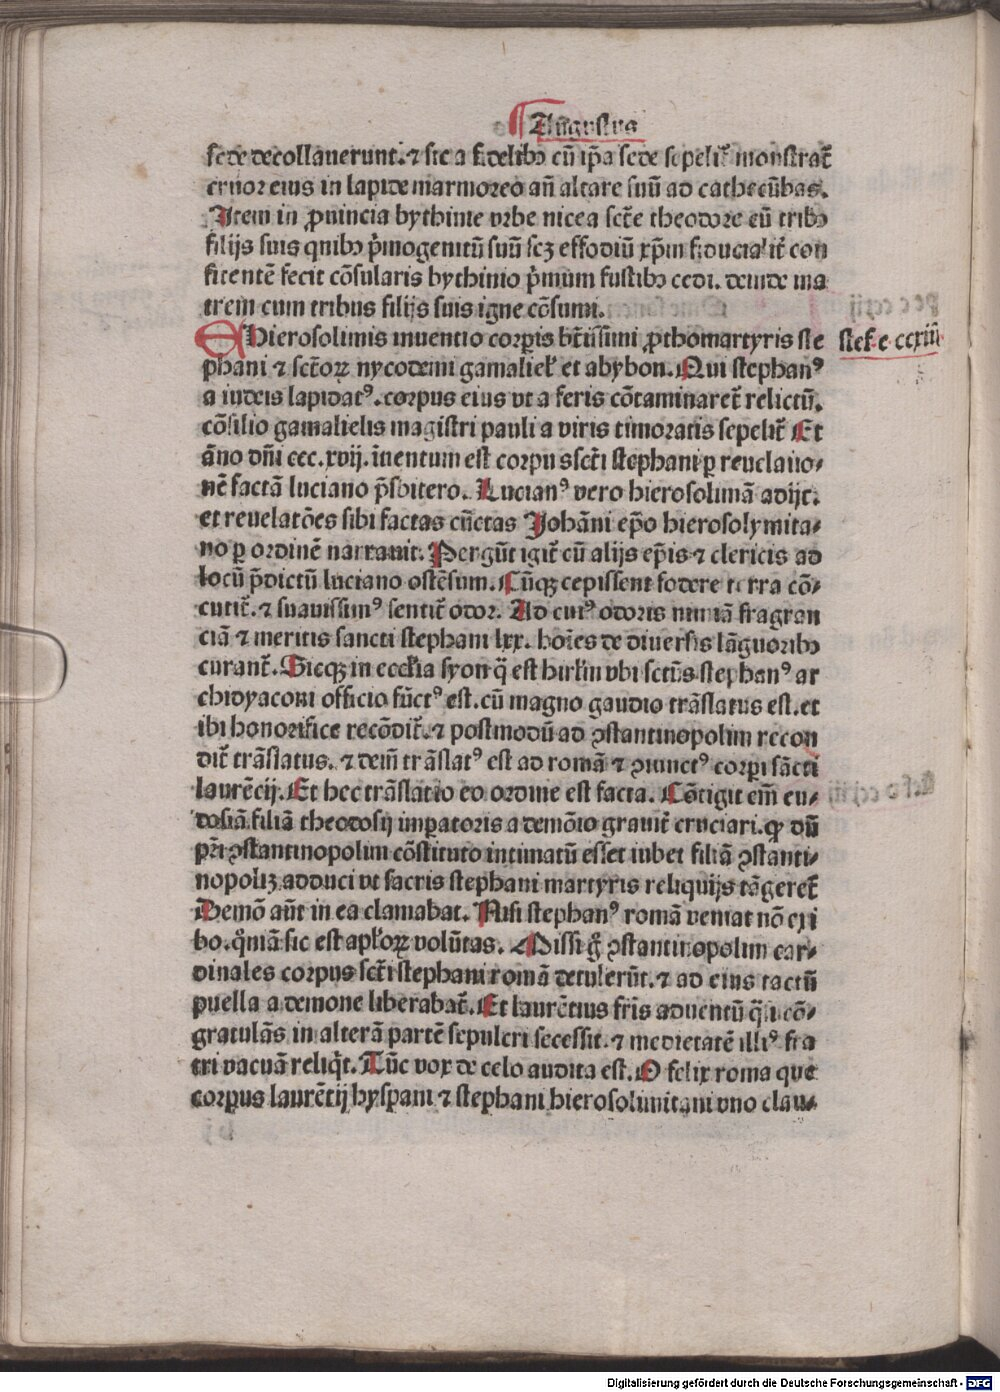 Augustus
sede decollauerunt. ⁊ sic a fidelibꝫ cū ip̄a sede sepelit᷑ monstrat᷑
cruor eius in lapide marmoreo añ altare suū ad cathecūbas.
Item in ꝓuincia bythinie vrbe nicea sct̄e theodore cū tribꝫ
filijs suis qnibꝫ p̄mogenitū suū scꝫ effodiū xp̄m fiducialit᷑ con
fitentē fecit cōsularis bythinio p̄mum fustibꝫ cedi. deinde ma
trem cum tribus filijs suis igne cōsumi.
Hierosolimis inuentio corꝑis bt̄issimi ꝓthomartyris ste
phani ⁊ sct̄oꝝ nycodemi gamaliel̓ et abybon. Qui stephanꝰ
a iudeis lapidatꝰ. corpus eius vt a feris cōtaminaret᷑ relictū.
cōsilio gamalielis magistri pauli a viris timoratis sepelit᷑ Et
āno dn̄i ccc.xvij. īuentum est corpus sct̄i stephani ꝑ reuelatio⸗
nē factā luciano p̄sbitero. Lucianꝰ vero hierosolimā adijt.
et reuelatōes sibi factas cūctas Johāni ep̄o hierosolymita⸗
no ꝑ ordinē narrauit. Pergūt igit᷑ cū alijs ep̄is ⁊ clericis ad
locū p̄dictū luciano ostēsum. Cūqꝫ cepissent fodere terra cō⸗
cutit᷑. ⁊ suauissimꝰ sentit᷑ odor. Ad cuiꝰ odoris nimiā fragran
ciā ⁊ meritis sancti stephani lxx. hoīes de diuersis lāguoribꝫ
curant᷑. Sicqꝫ in eccl̓ia syon q̄ est hirl̓m vbi sctūs stephanꝰ ar
chidyaconi officio fūctꝰ est. cū magno gaudio trāslatus est. et
ibi honorifice recōdit᷑. ⁊ postmodū ad ꝯstantinopolim recon
dit᷑ trāslatus. ⁊ dem̄ trāslatꝰ est ad romā ⁊ ꝯiunctꝰ corꝑi sācti
laurēcij. Et hec trāslatio eo ordine est facta. Cōtigit em̄ eu⸗
dosiā filiā theodosij imꝑatoris a demōio grauit᷑ cruciari. qd̓ dū
pr̄i ꝯstantinopolim cōstituto intimatū esset iubet filiā ꝯstanti⸗
nopolīz adduci vt sacris stephani martyris reliquijs tāgeret᷑
Demō aūt in ea clamabat. Nisi stephanꝰ romā veniat nō exi
bo. qm̄ā sic est apl̓oꝝ volūtas. Missi gͦ ꝯstantinopolim car⸗
dinales corpus sct̄i stephani romā detulerūt. ⁊ ad eius tactū
puella a demone liberabat᷑. Et laurētius fr̄is aduentū q̄si cō⸗
gratulās in alterā partē sepulcri secessit. ⁊ medietatē illiꝰ fra
tri vacuā reliqt̄. Tūc vox de celo audita est. O felix roma que
corpus laurētij hyspani ⁊ stephani hierosolimitani vno clau⸗